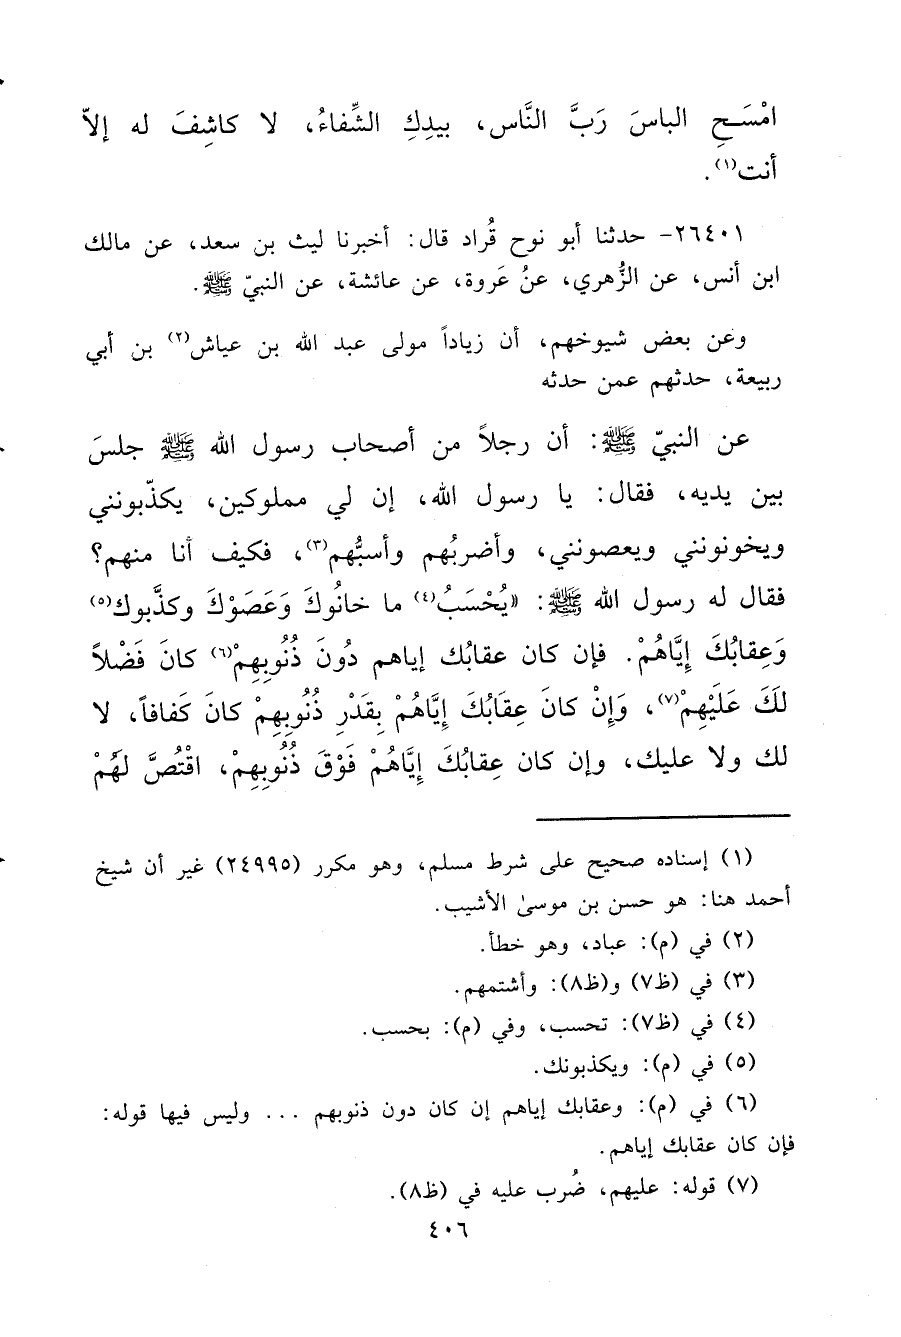 امْسَحِ الباسَ رَبَّ النَّاس، بيدِكِ الشِّفاءُ، لا كاشِفَ له إلاّ
أنت(١).
٢٦٤٠١- حدثنا أبو نوح قُراد قال: أخبرنا ليث بن سعد، عن مالك
ابن أنس، عن الزُّهري، عنُ عَروة، عن عائشة، عن النبيّ ﷺ.
وعن بعض شيوخهم، أن زياداً مولى عبد الله بن عياش(٢) بن أبي
ربيعة، حدثهم عمن حدثه
عن النبيّ ﷺ: أن رجلاً من أصحاب رسول الله ﷺ جلسَ
بين يديه، فقال: يا رسول الله، إن لي مملوكين، يكذّبونني
ويخونونني ويعصونني، وأضربُهم وأسبُّهم(٣)، فكيف أنا منهم؟
فقال له رسول الله ﷺ: «يُحْسَبُ(٤) ما خانُوكَ وَعَصَوْكَ وكذَّبوك(٥)
وَعِقابُكَ إِيَّاهُمْ. فإن كان عقابُك إياهم دُونَ ذُنُوبِهِمْ(٦) كانَ فَضْلاً
لكَ عَلَيْهِمْ(٧)، وَإِنْ كانَ عِقَابُكَ إِيَّاهُمْ بِقَدْرِ ذُنُوبِهِمْ كانَ كَفافاً، لا
لك ولا عليك، وإن كان عِقابُكَ إِيَّاهُمْ فَوْقَ ذُنُوبِهِمْ، اقْتُصَّ لَهُمْ
(١) إسناده صحيح على شرط مسلم، وهو مكرر (٢٤٩٩٥) غير أن شيخ
أحمد هنا: هو حسن بن موسىٰ الأشيب.
(٢) في (م): عباد، وهو خطأ.
(٣) في (ظ٧) و(ظ٨): وأشتمهم.
(٤) في (ظ٧): تحسب، وفي (م): بحسب.
(٥) في (م): ويكذبونك.
(٦) في (م): وعقابك إياهم إن كان دون ذنوبهم ... وليس فيها قوله:
فإن كان عقابك إياهم.
(٧) قوله: عليهم، ضُرب عليه في (ظ٨).
٤٠٦